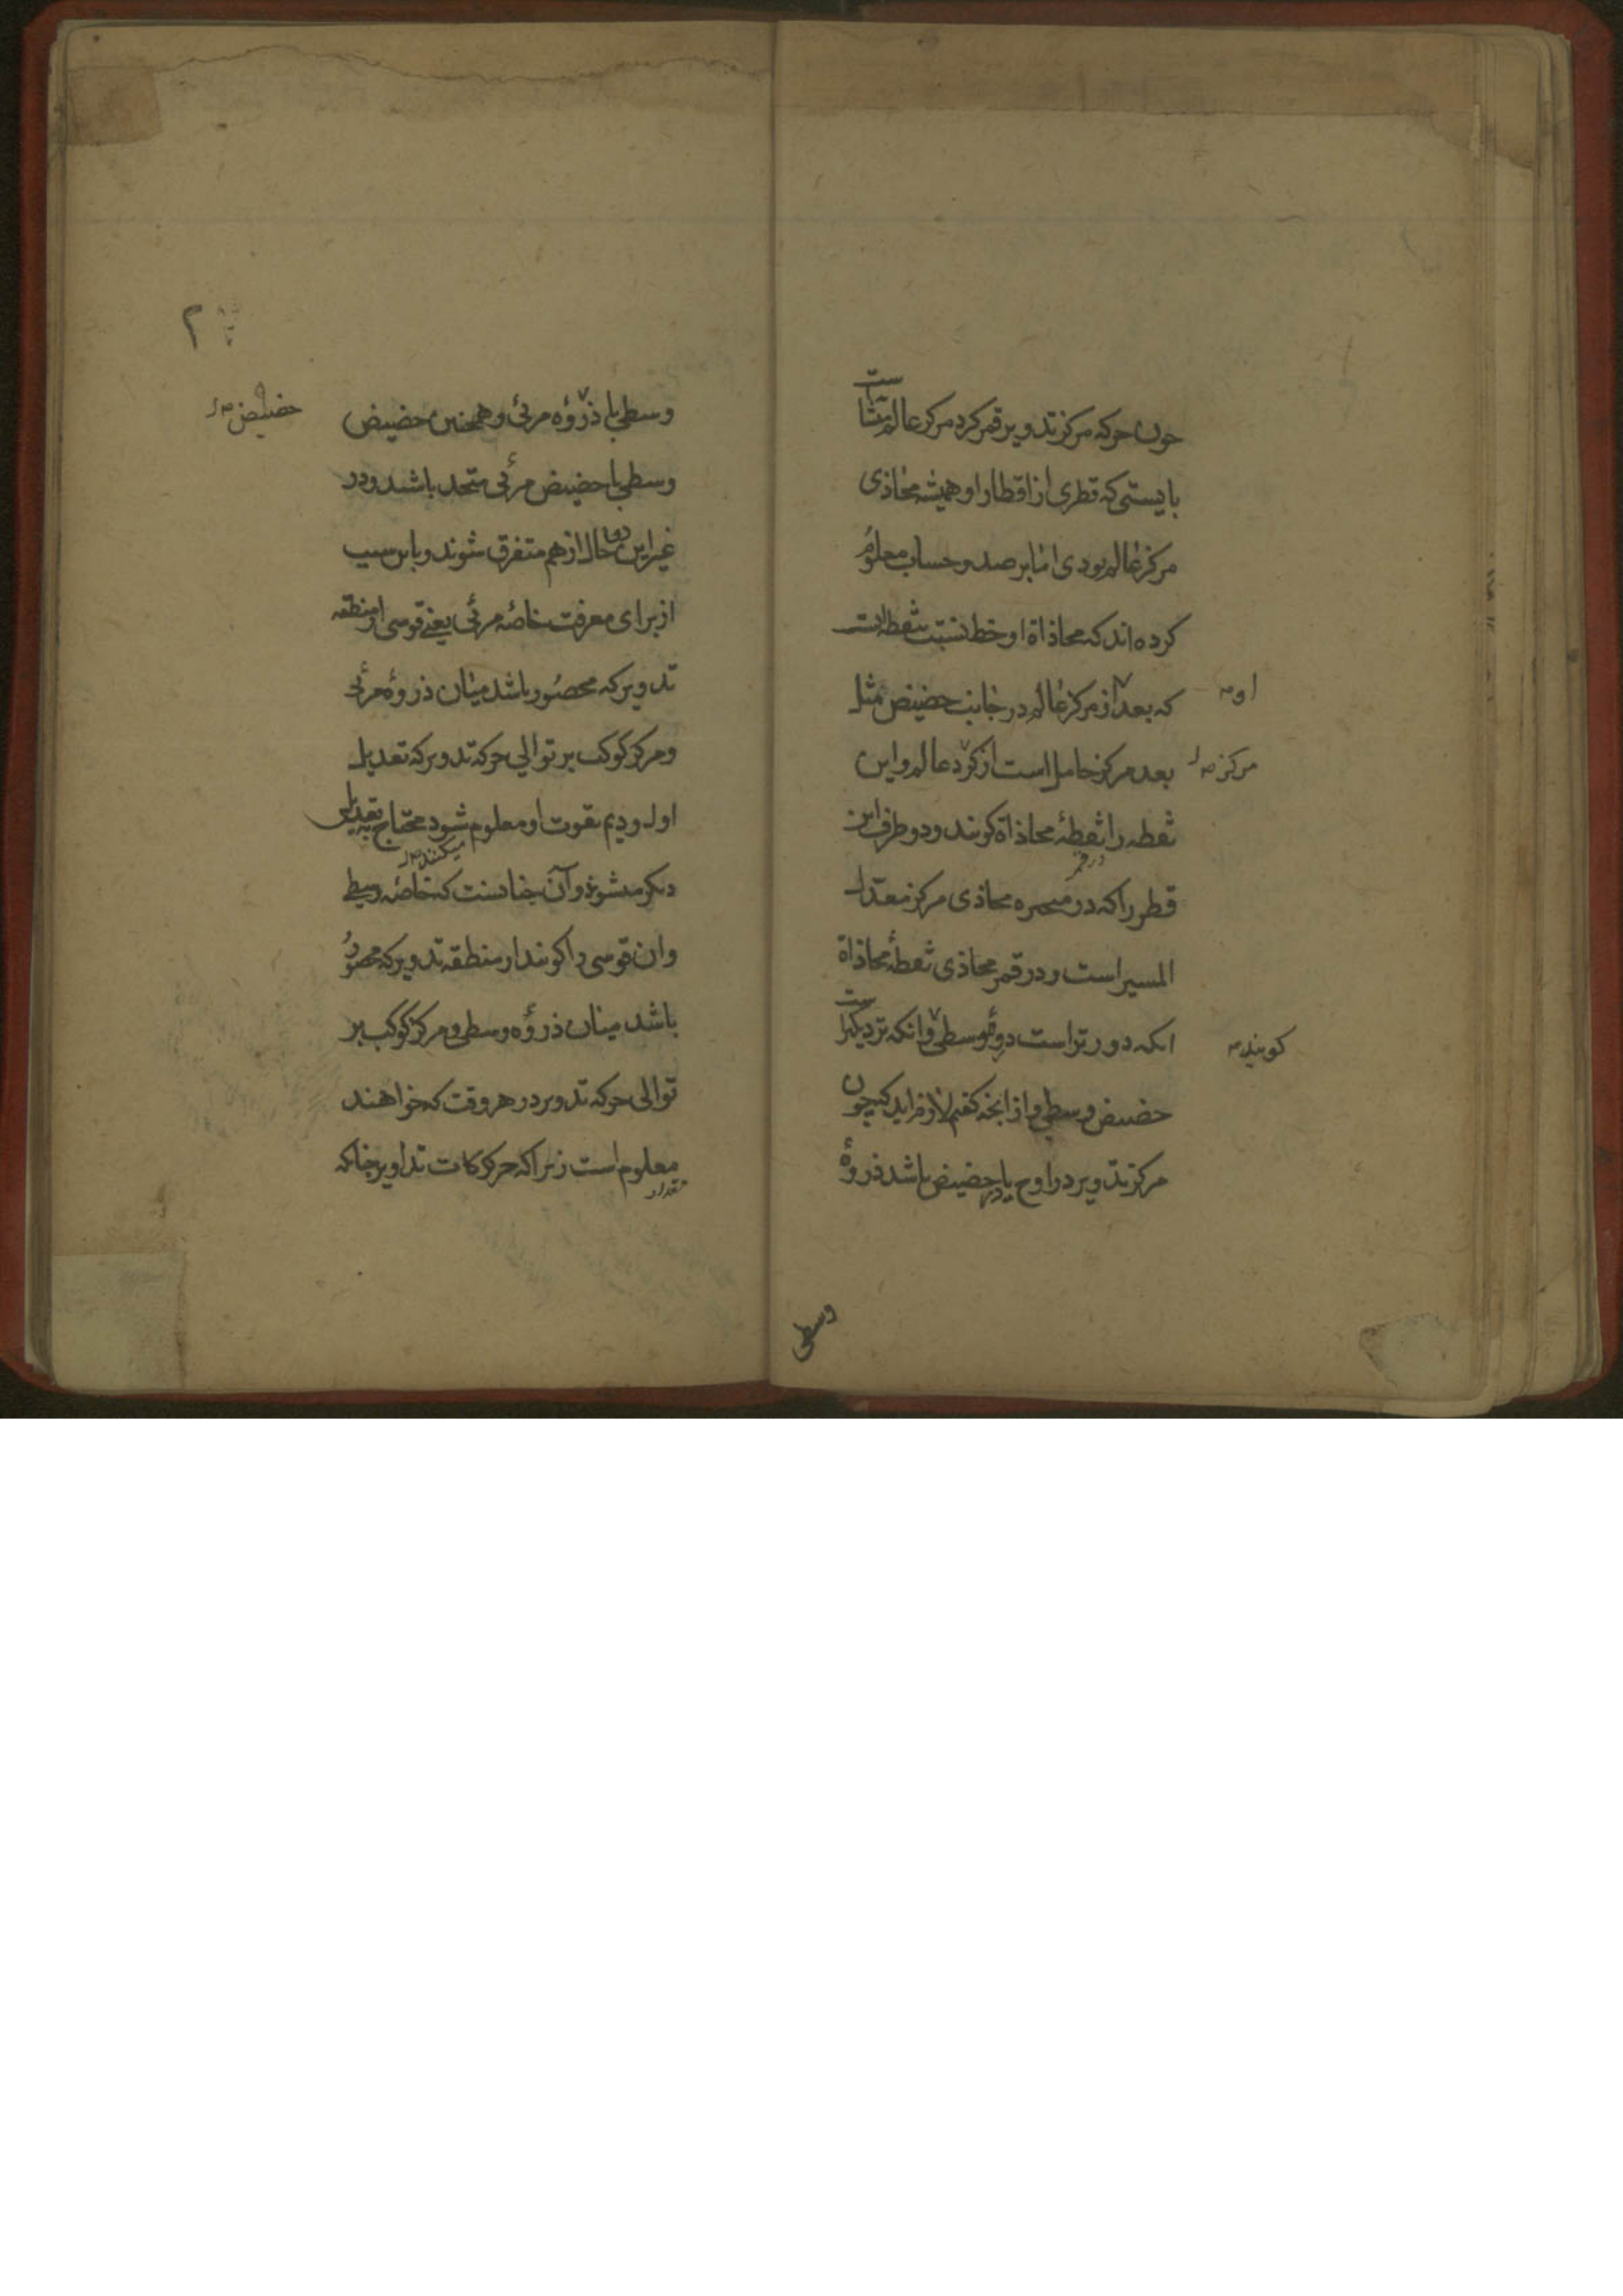 چون حرکه مرکز تدویر قمر کرد مرکز عالم متشابه است
بایستی که قطری از اقطار او همیشه محاذی
مرکز عالم بودی اما برصد و حساب معلوم
کرده اند که محاذاة او خط نسبت نقطه است
که بعد از مرکز عالم در جانب حضیض مثل
او
بعد مرکز حامل است از کرد عالم و این
مرکز
نقطه را نقطهٔ محاذاة کویند و دو طرف این
قطر را که در متحیره محاذی مرکز معدل
المسیر است و در قمر محاذی نقطهٔ محاذاة
انکه دورتر است ذروه وسطی و انکه نزدیکتر است
کویند
حضیض وسطی و از انچه کفتیم لازم اید که چون
مرکز تدویر در اوج یا در حضیض باشد ذروهٔ
وسطی
۲
وسطی با ذروهٔ مرئی و همچنین حضیض
حضیض
وسطی با حضیض مرئی متحد باشند و در
غیر این دو حال از هم متفرق شوند و باین سبب
از برای معرفت خاصّه مرئی یعنی قوسی از منطقه
تدویر که محصور باشد میان ذروهٔ مرئی
و مرکز کوکب بر توالی حرکه تدویر که تعدیل
اول و دیم بقوت او معلوم شود محتاج بتعدیلی
میکنند
دیکر میشوند و آن چنانست که خاصّه وسطی
وان قوسی را کویند از منطقه تدویر که محصور
باشد میان ذروهٔ وسطی و مرکز کوکب بر
توالی حرکه تدویر در هر وقت که خواهند
معلوم است زیرا که حرکات تداویر چنانکه
مقدار